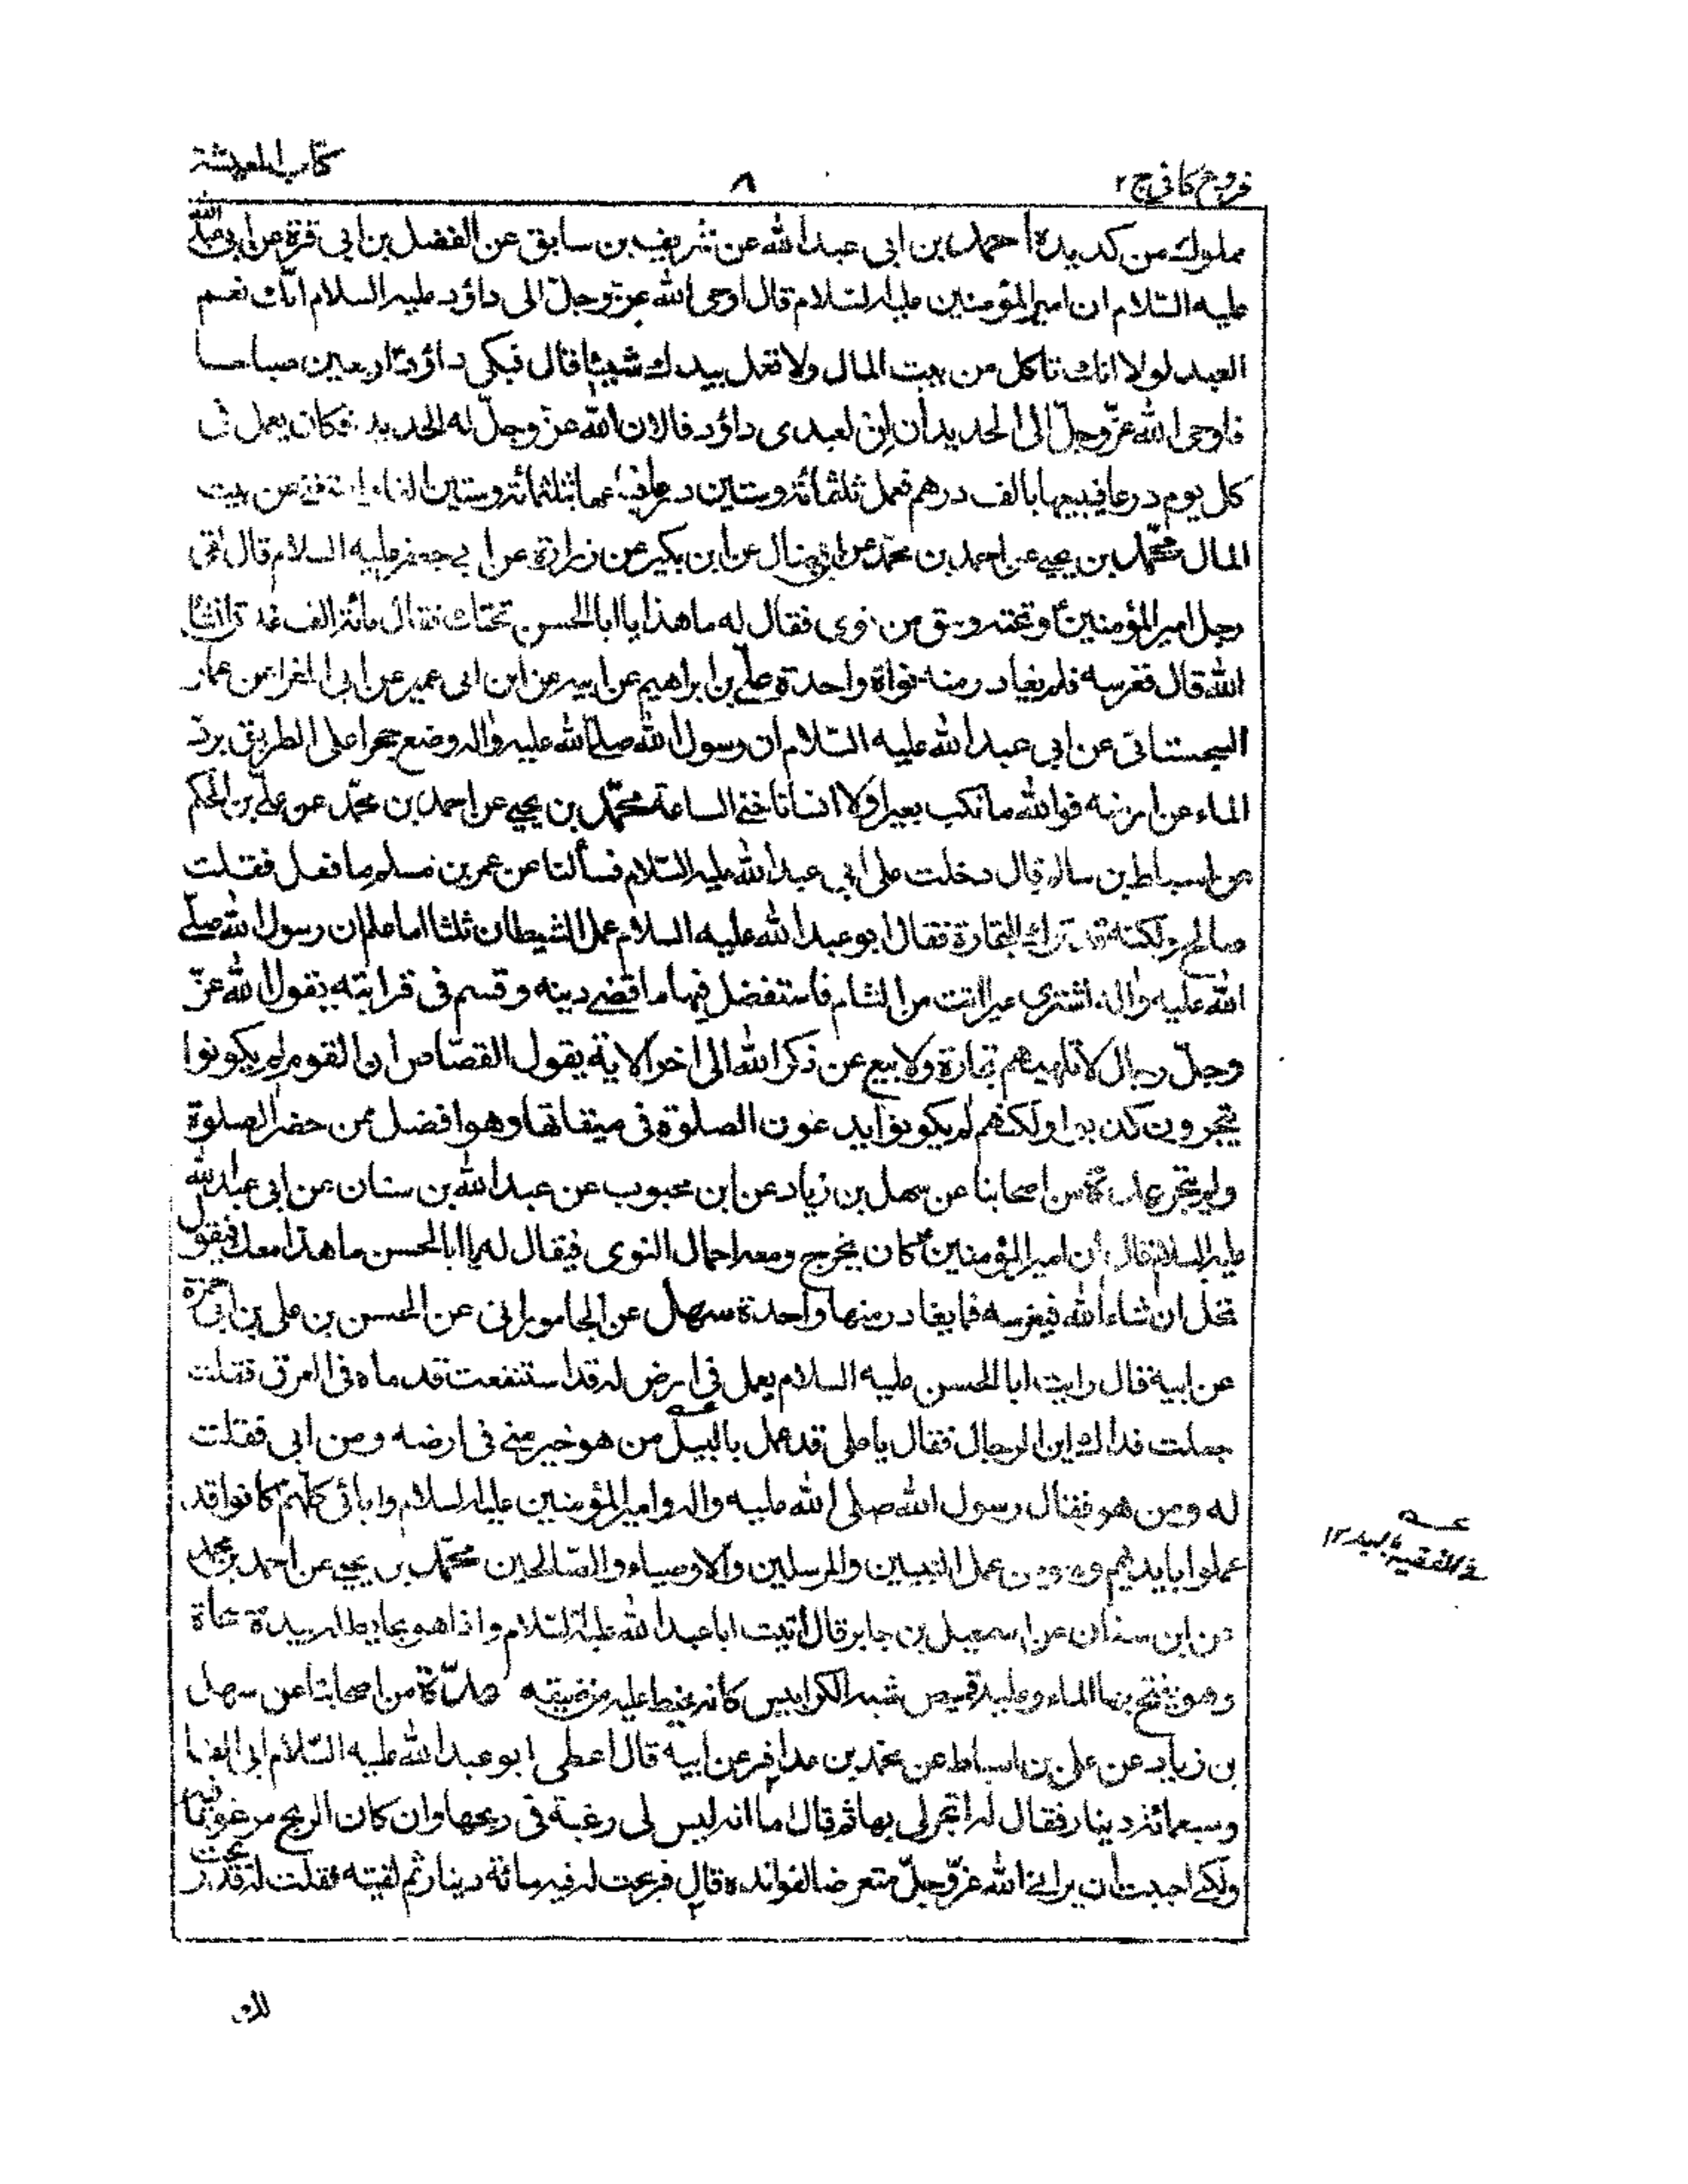 فروع كافي ج٢
٨
كتاب المعيشة
مملوك من كد يده احمد بن ابى عبدالله عن شريف بن سابق عن الفضل بن ابى قرة عن ابى عبدالله
عليه السّلام ان امير المؤمنين عليه السّلام قال اوحى الله عزّوجلّ الى داؤد عليه السلام انّك نعم
العبد لولا انك تاكل من بيت المال ولا تعمل بيدك شيئا قال فبكى داؤد اربعين صباحا
فاوحى الله عزّوجلّ الى الحديد أن لِن لعبدى داؤد فالان الله عزّوجلّ له الحديد فكان يعمل فى
كل يوم درعا فيبيعها بالف درهم فعمل ثلثمائة وستين درعا فباعها بثلثمائة وستين الفا واستغنى عن بيت
المال محمّد بن يحيى عن احمد بن محمّد عن ابن فضال عن ابن بكير عن زرارة عن ابى جعفر عليه السلام قال لقى
رجل امير المؤمنينؑ وتحته وسق من نوى فقال له ما هذا يا ابا الحسن تحتك فقال مائة الف عذق انشا
الله قال فغرسه فلم يغادر منه نواة واحدة علىّ بن ابراهيم عن ابيه عن ابن ابى عمير عن ابى المغرا عن عمّار
السجستانى عن ابى عبدالله عليه السّلام ان رسول الله صلى الله عليه واله وضع حجرا على الطريق يردّ
الماء عن ارضه فوالله ما نكب بعيرا ولا انسانا حتى الساعة محمّد بن يحيى عن احمد بن محمّد عن علىّ بن الحكم
عن اسباط بن سالم قال دخلت على ابى عبدالله عليه السّلام فسألنا عن عمر بن مسلم ما فعل فقلت
صالح ولكنه قد ترك التجارة فقال ابو عبدالله عليه السلام عمل الشيطان ثلثا اما علم ان رسول الله صلّى
الله عليه واله اشترى عيرا اتت من الشام فاستفضل فيها ما قضى دينه وقسم فى قرابته يقول الله عزّ
وجلّ رجال لا تلهيهم تجارة ولا بيع عن ذكر الله الى اخر الاية يقول القصّاص ان القوم لم يكونوا
يتجرون كذبوا ولكنهم لم يكونوا يدعون الصلوة فى ميقاتها وهو افضل ممن حضر الصلوة
ولم يتجر عدة من اصحابنا عن سهل بن زياد عن ابن محبوب عن عبدالله بن سنان عن ابى عبدالله
عليه السلام قال ان امير المؤمنينؑ كان يخرج ومعه احمال النوى فيقال له يا ابا الحسن ما هذا معك فيقول
نخل ان شاء الله فيغرسه فما يغادر منها واحدة سهل عن الجاموراني عن الحسن بن على بن ابى حمزة
عن ابيه قال رايت ابا الحسن عليه السلام يعمل فى ارض له قد استنقعت قدماه فى العرق فقلت
جعلت فداك اين الرجال فقال يا على قد عمل بالبيل من هو خير منى فى ارضه ومن ابى فقلت
له ومن هو فقال رسول الله صلى الله عليه واله وامير المؤمنين عليه السلام وابائى كلهم كانوا قد
عملوا بايديهم وهو من عمل النبيين والمرسلين والاوصياء والصّالحين محمّد بن يحيى عن احمد بن محمد
عن ابن سنان عن اسمعيل بن جابر قال اتيت ابا عبدالله عليه السّلام واذا هو بحايط له بيده مسحاة
وهو يفتح بها الماء وعليه قميص شبه الكرابيس كانه مخيط عليه من ضيقه عدّة من اصحابنا عن سهل
بن زياد عن على بن اسباط عن محمد بن عذافر عن ابيه قال اعطى ابو عبدالله عليه السّلام ابى الفا
وسبعمائة دينار فقال له اتجر لى بها ثم قال اما انه ليس لى رغبة فى ربحها وان كان الربح مرغوبا فيه
ولكنى احببت أن يرانى الله عزّوجلّ متعرضا لفوائده قال فربحت له فيه مائة دينار ثم لقيته فقلت له قد ربحت
لك
عـــه
فى الفقيه باليد ١٢